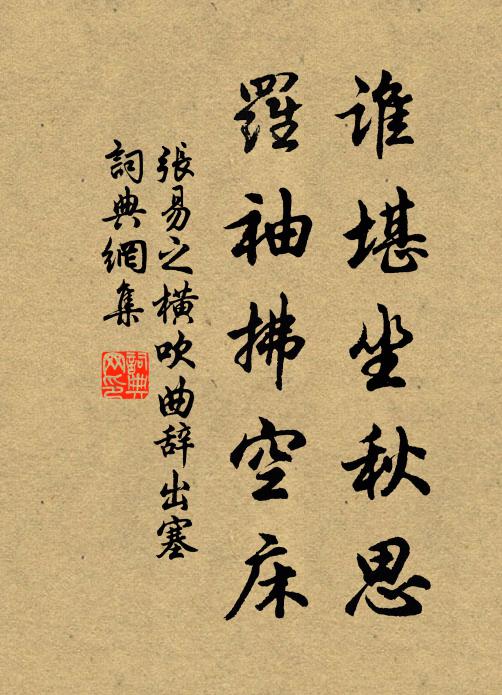 谁堪坐秋思
羅袖拂空床
張易之橫吹曲辞出塞
詞典網集
詞典网印